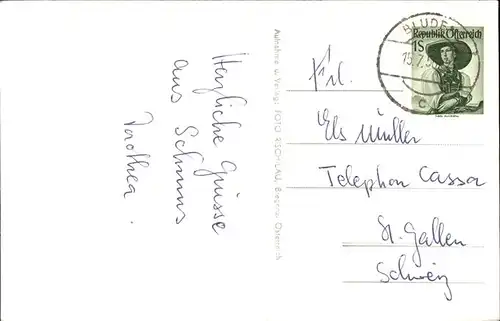 Herzliche Grüsse
aus Schruns
Dorothea.
Aufnahme u. Verlag: FOTO RISCH-LAU, Bregenz, Österreich
BLUDENZ
15.7.5
C
Republik Österreich
1S
Frl.
Els Müller
Telephon Cassa
St. Gallen
Schweiz